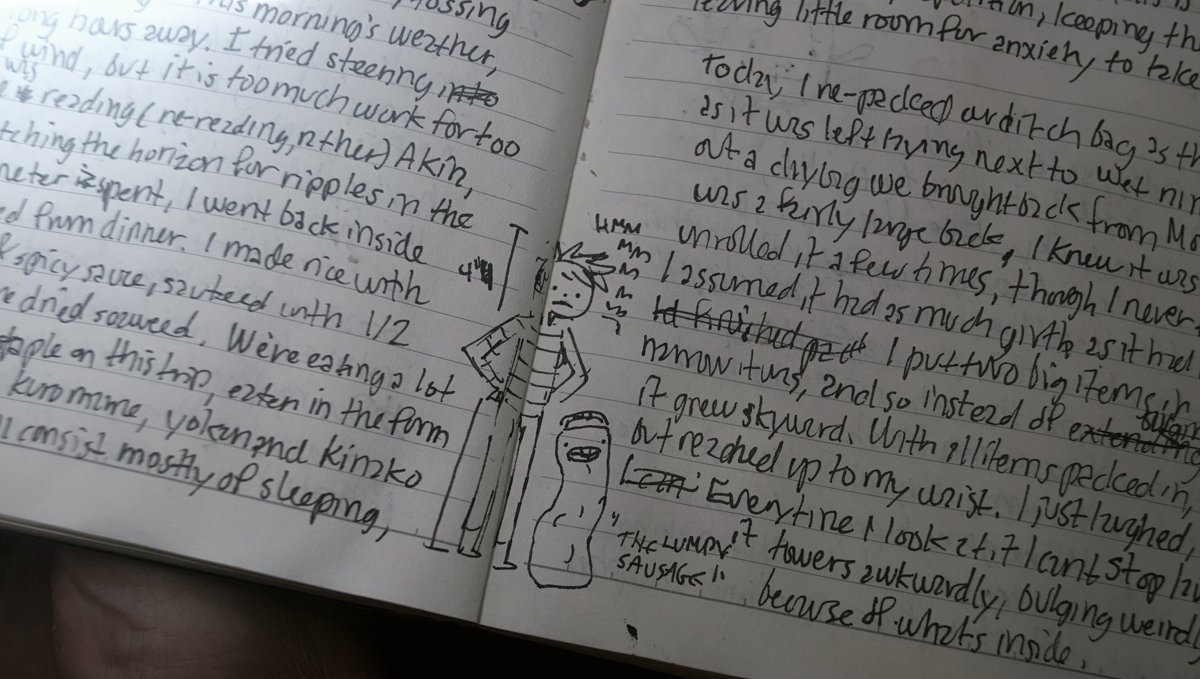 this morning's weather,
long hours away. I tried steering, into
wind, but it is too much work for too
reading (re-reading, rather) Akin,
the horizon for ripples in the
spent, I went back inside
from dinner. I made rice with
& spicy sauce, sauteed with 1/2
dried seaweed. We're eating a lot
on this trip, eaten in the form
kuromame, yokan and kinako
consist mostly of sleeping,
4"
HMM
MM
M
M
M
"THE LUMPY
SAUSAGE!"
leaving little room for anxiety, to take
today, I re-packed our ditch bag as
as it was left trying next to wet
out a dry bag we brought back from
was a fairly large back, I knew it was
unrolled, it a few times, though I never
I assumed, it had as much girth as it had
I put two big items, in
narrow it was, and so instead of
it grew skyward. With all items packed in,
but reached up to my waist. I just laughed,
Everytime I look at it I can't stop
it towers awkwardly, bulging
because of what's inside.